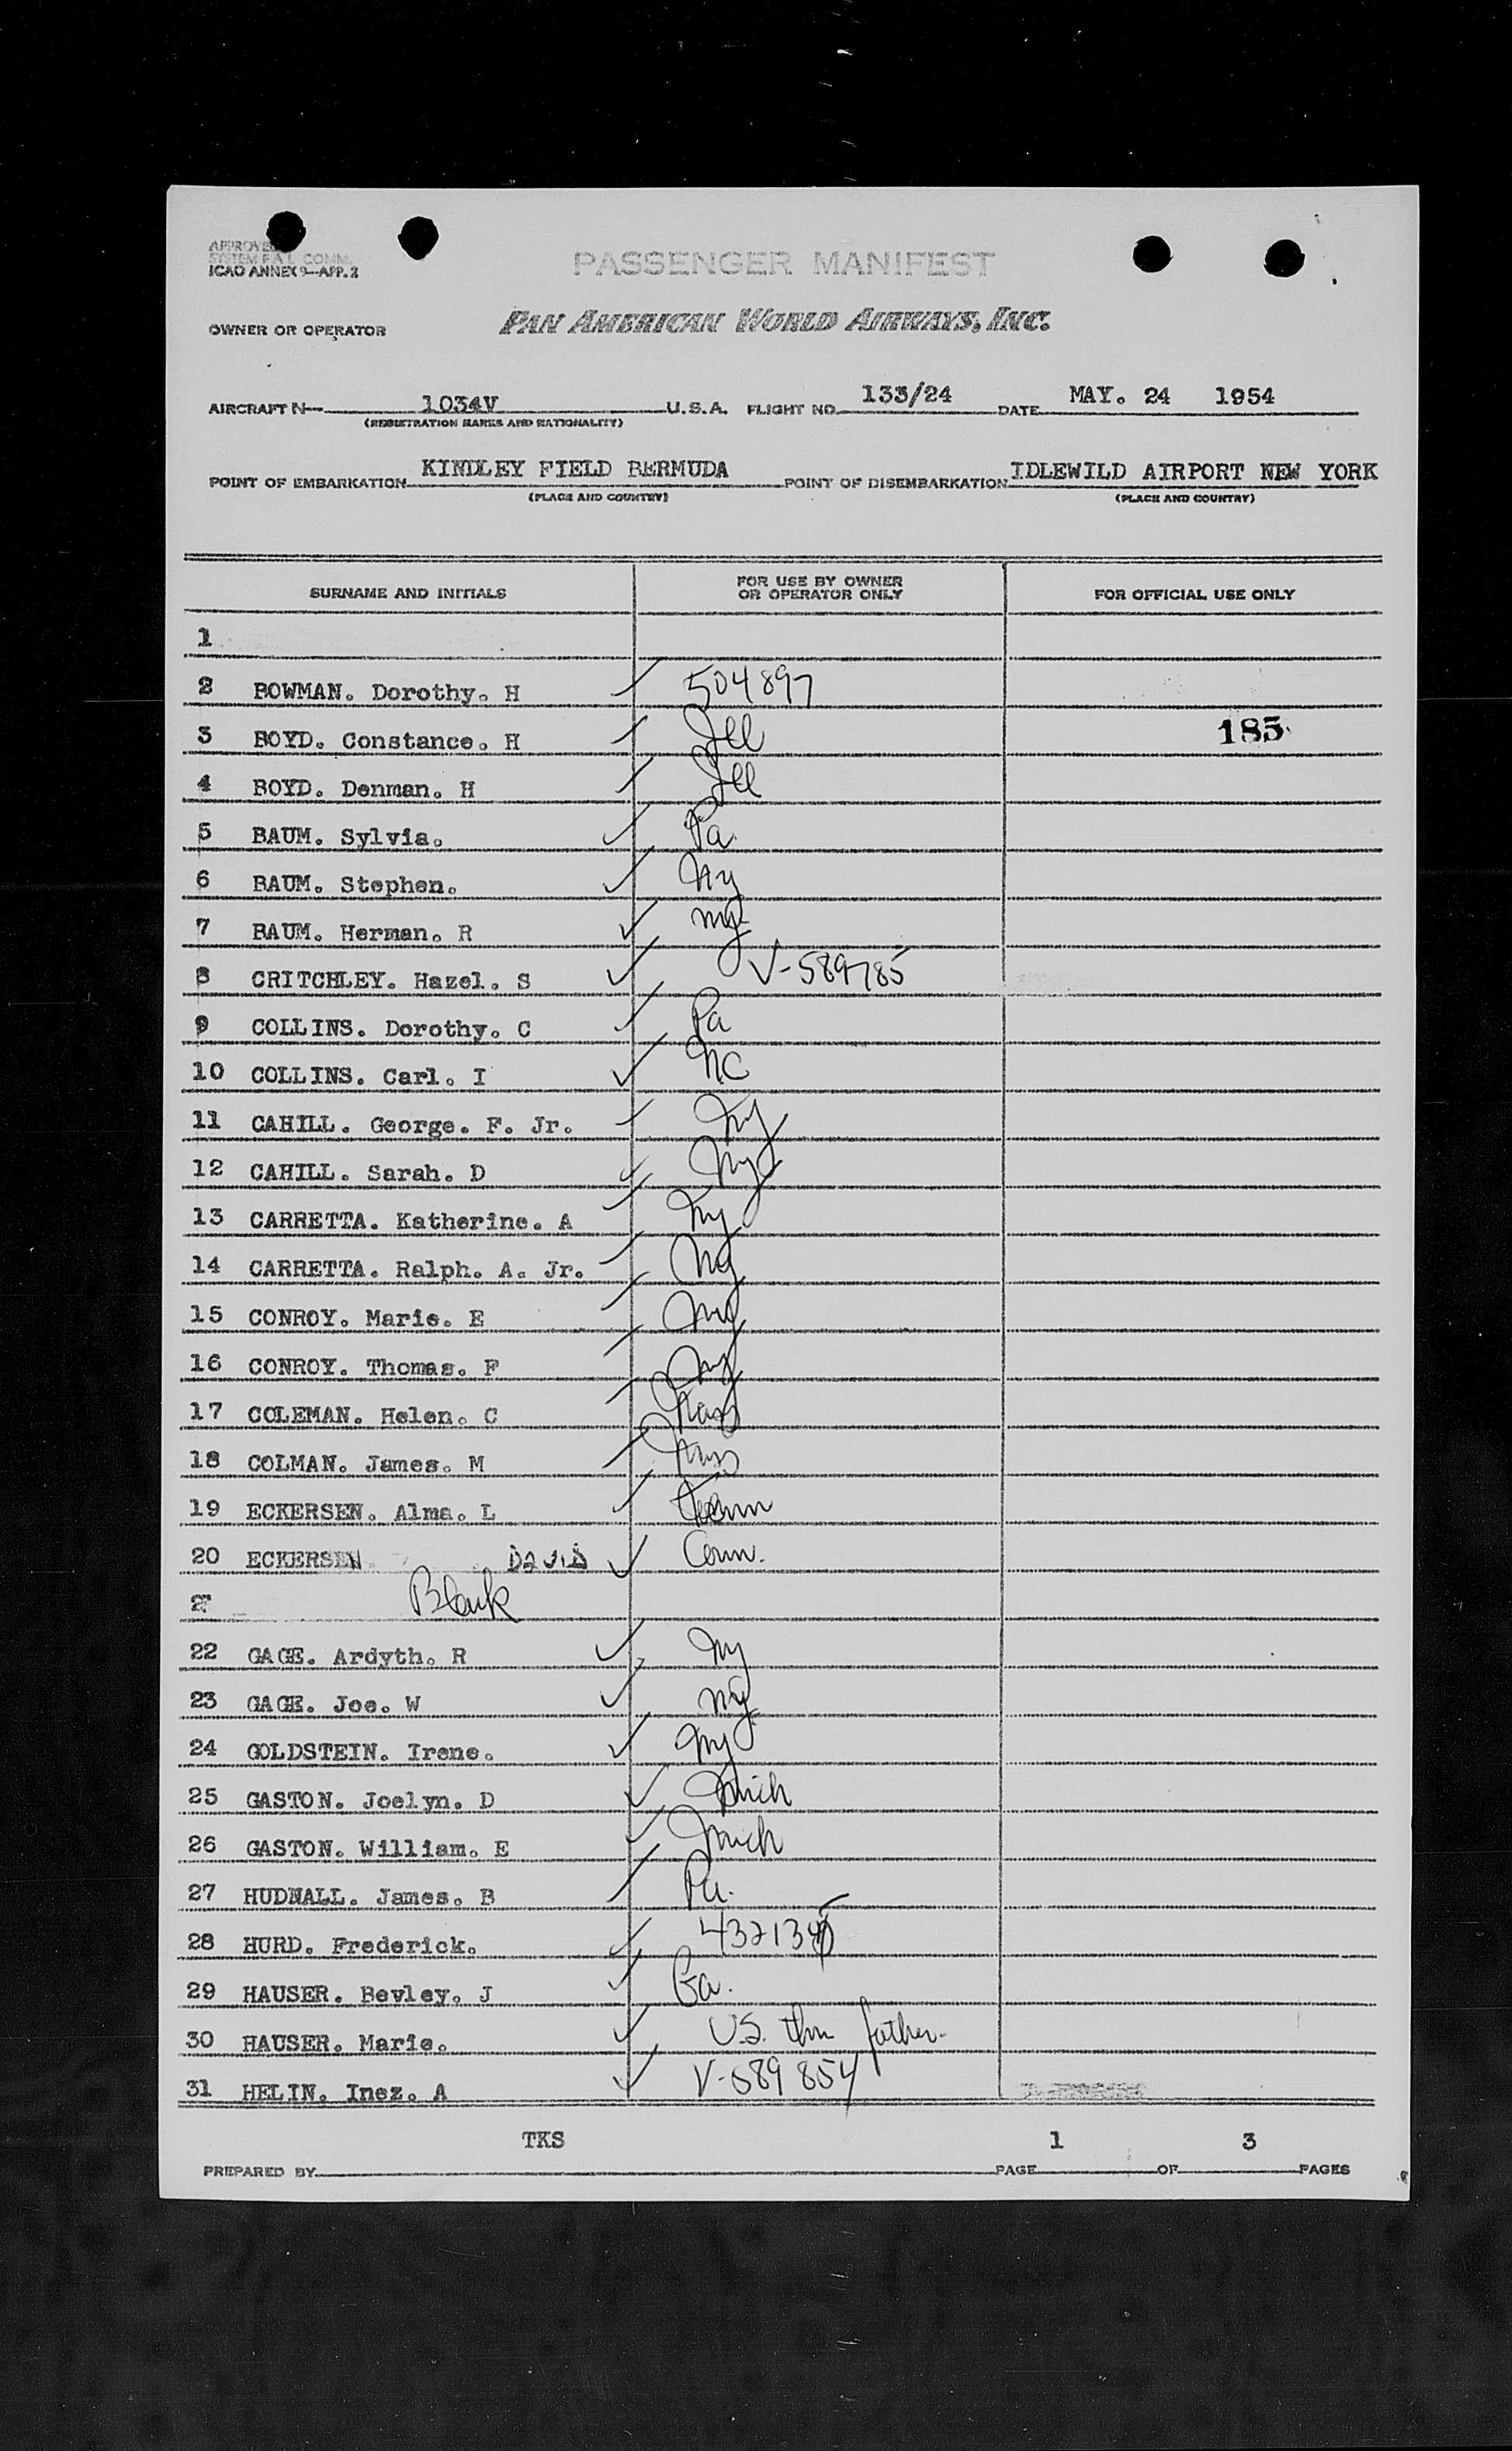 APPROVED
SYSTEM F.A.L. COMM.
ICAO ANNEX 9—APP. 2
PASSENGER MANIFEST
OWNER OR OPERATOR PAN AMERICAN WORLD AIRWAYS, INC.
AIRCRAFT N— 1034V U.S.A. FLIGHT NO. 133/24 DATE MAY. 24 1954
(REGISTRATION MARKS AND NATIONALITY)
POINT OF EMBARKATION KINDLEY FIELD BERMUDA POINT OF DISEMBARKATION IDLEWILD AIRPORT NEW YORK
(PLACE AND COUNTRY) (PLACE AND COUNTRY)
SURNAME AND INITIALS FOR USE BY OWNER OR OPERATOR ONLY FOR OFFICIAL USE ONLY
1
2 BOWMAN. Dorothy. H ✓ 504897
3 BOYD. Constance. H ✓ Ill 185
4 BOYD. Denman. H ✓ Ill
5 BAUM. Sylvia. ✓ Pa.
6 BAUM. Stephen. ✓ Ny
7 BAUM. Herman. R ✓ Ny
8 CRITCHLEY. Hazel. S ✓ V-589785
9 COLLINS. Dorothy. C ✓ Pa
10 COLLINS. Carl. I ✓ NC
11 CAHILL. George. F. Jr. ✓ Ny
12 CAHILL. Sarah. D ✓ Ny
13 CARRETTA. Katherine. A ✓ Ny
14 CARRETTA. Ralph. A. Jr. ✓ Ny
15 CONROY. Marie. E ✓
16 CONROY. Thomas. F ✓
17 COLEMAN. Helen. C ✓ Mass
18 COLMAN. James. M ✓ Mass
19 ECKERSEN. Alma. L ✓
20 ECKERSEN DAVID ✓ Conn.
Blank
22 GAGE. Ardyth. R ✓ Ny
23 GAGE. Joe. W ✓ Ny
24 GOLDSTEIN. Irene. ✓ Ny
25 GASTON. Joelyn. D ✓ Mich
26 GASTON. William. E ✓ Mich
27 HUDNALL. James. B ✓ Pa.
28 HURD. Frederick. ✓
29 HAUSER. Bevley. J ✓ Ga.
30 HAUSER. Marie. ✓ U.S. thru father.
31 HELIN. Inez. A ✓ V-589854
PREPARED BY TKS PAGE 1 OF 3 PAGES